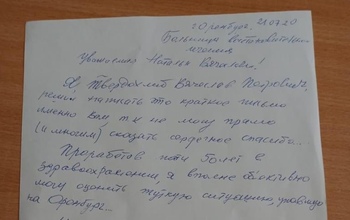 г. Оренбург, 21.07.20
Больница восстановительного
лечения
Уважаемая Наталья Вячеславна!
Я, Твердохлеб Вячеслав Петрович,
решил написать это краткое письмо
именно Вам, т.к. не могу прямо
(и многим) сказать сердечное спасибо...
Проработав почти 50 лет в
здравоохранении, я вполне объективно
могу оценить жуткую ситуацию,
на Оренбург...